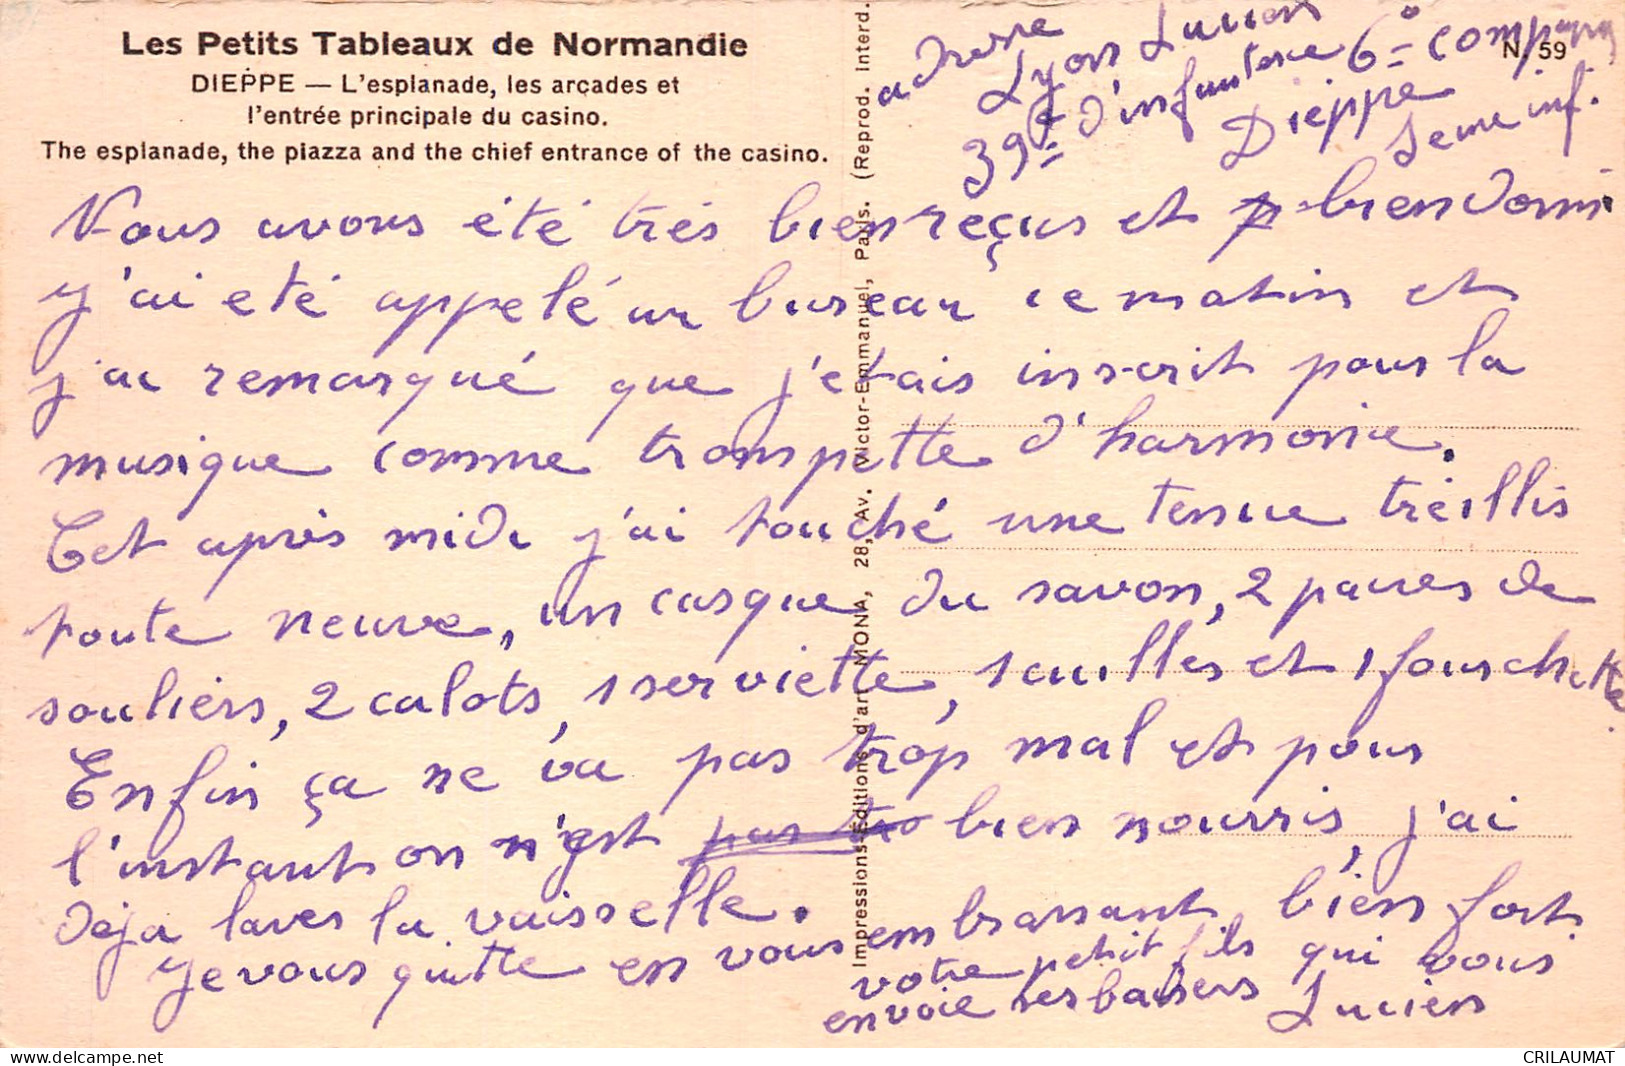 Les Petits Tableaux de Normandie
DIEPPE — L'esplanade, les arçades et
l'entrée principale du casino.
The esplanade, the piazza and the chief entrance of the casino.
N. 59
adresse
Lyon Lucien
39e d'infanterie 6e compagn
Dieppe
Seine inf.
Nous avons été très bien reçus et bien dormi
j'ai eté appelé au bureau ce matin et
j'ai remarqué que j'etais inscrit pour la
musique comme trompette d'harmonie.
Cet après midi j'ai touché une tenue tréillis
toute neuve, un casque du savon, 2 paires de
souliers, 2 calots, 1 serviette, 1 cuillés et 1 fourchette.
Enfin ça ne va pas trop mal et pour
l'instant on n'est pas tro bien nourris, j'ai
déja laver la vaisselle.
Je vous quitte en vous embrassant bien fort
votre petit fils qui vous
envoie ses baisers Lucien
Impressions-Editions d'art MONA, 28, Av. Victor-Emmanuel, Paris. (Reprod. Interd.
delcampe.net
CRILAUMAT